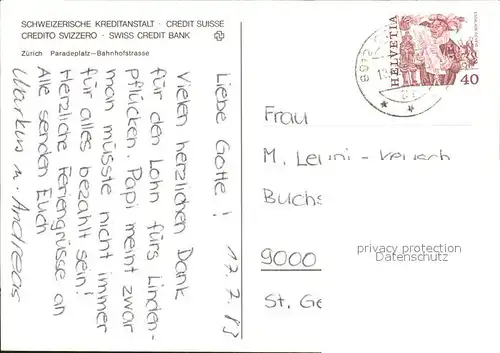 SCHWEIZERISCHE KREDITANSTALT · CREDIT SUISSE
CREDITO SVIZZERO · SWISS CREDIT BANK
Zürich Paradeplatz–Bahnhofstrasse
17.7.83
Liebe Gotte!
Vielen herzlichen Dank
für den Lohn fürs Linden-
pflücken. Papi meint zwar
man müsste nicht immer
für alles bezahlt sein!
Herzliche Feriengrüsse an
Alle senden Euch
Markus u. Andreas
HELVETIA
40
Frau
M.
Buchs
9000
St. Ge
privacy protection
Datenschutz